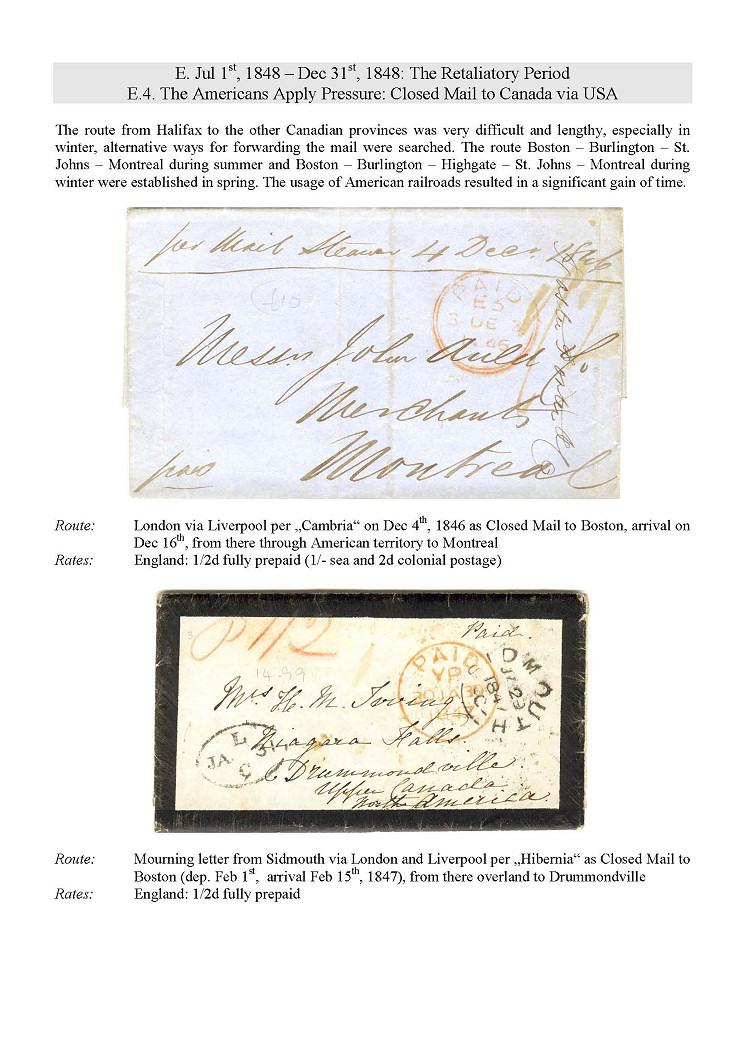 E. Jul 1st, 1848 – Dec 31st, 1848: The Retaliatory Period
E.4. The Americans Apply Pressure: Closed Mail to Canada via USA
The route from Halifax to the other Canadian provinces was very difficult and lengthy, especially in
winter, alternative ways for forwarding the mail were searched. The route Boston – Burlington – St.
Johns – Montreal during summer and Boston – Burlington – Highgate – St. Johns – Montreal during
winter were established in spring. The usage of American railroads resulted in a significant gain of time.
per Mail Steamer 4 Decr 1846
PAID
3 DE 3
1846
Messrs John Auld
Merchants
Montreal
paid
Route: London via Liverpool per „Cambria“ on Dec 4th, 1846 as Closed Mail to Boston, arrival on
Dec 16th, from there through American territory to Montreal
Rates: England: 1/2d fully prepaid (1/- sea and 2d colonial postage)
Paid.
P 1/2
PAID
YP
30 JA 30
1847
14.99
Mrs H. M. Irving
Niagara Falls
Drummondville
Upper Canada
North America
Route: Mourning letter from Sidmouth via London and Liverpool per „Hibernia“ as Closed Mail to
Boston (dep. Feb 1st, arrival Feb 15th, 1847), from there overland to Drummondville
Rates: England: 1/2d fully prepaid